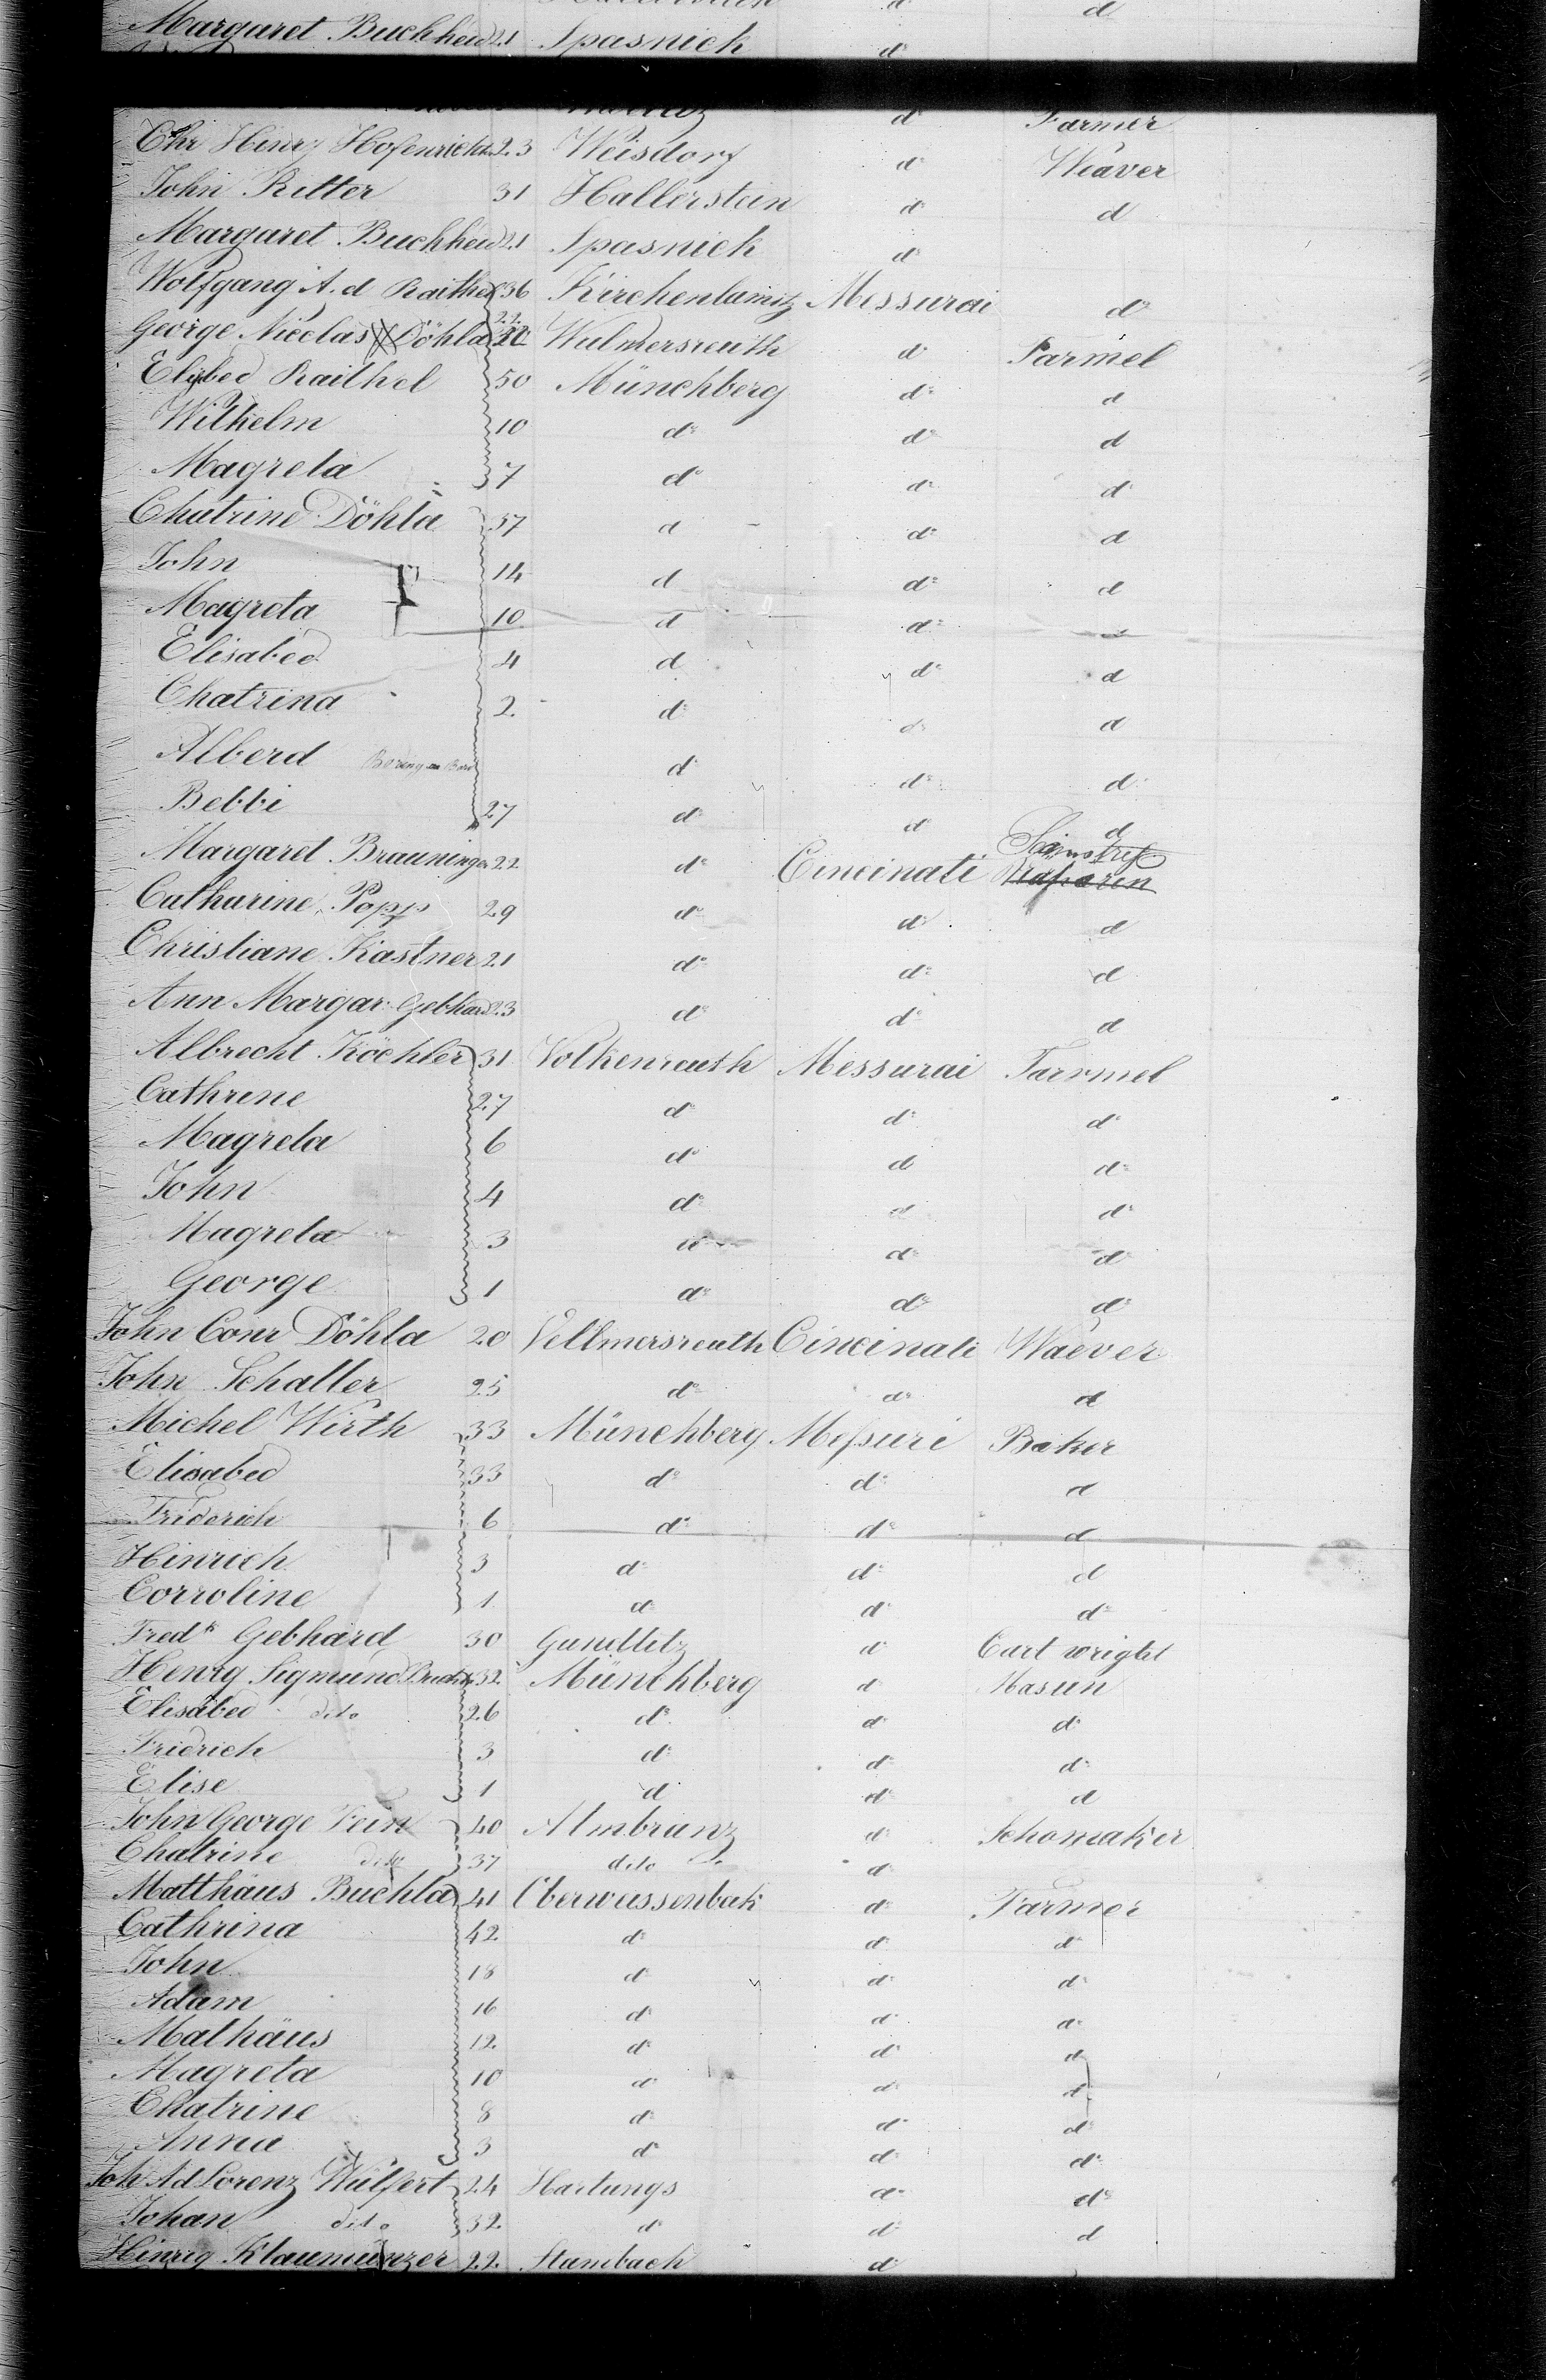 d d
Margaret Buchheid 21 Spasnick d
d Farmer
Chr Henry Hofenrichter 23 Weisdorf d Weaver
John Ritter 31 Hallerstein d d
Margaret Buchheid 21 Spasnick d
Wolfgang A. d Raithel 36 Kirchenlamitz Messurai d
George Nicolas Döhla 22 Wulmersreuth d Farmel
Elisbed Raithel 50 Münchberg d d
Wilhelm 10 d d d
Magreta 7 d d d
Chatrine Döhla 37 d d d
John 14 d d d
Magreta 10 d d d
Elisabed 4 d d d
Chatrina 2 d d d
Alberd d d d
Bebbi 27 d d d
Margaret Brauninger 22 d Cincinati
Catharine Popp 29 d d d
Christiane Kastner 21 d d d
Ann Margar. Gebhard 23 d d d
Albrecht Köehler 31 Volkenreuth Messurai Farmel
Cathrene 27 d d d
Magreta 6 d d d
John 4 d d d
Magreta 3 d d d
George 1 d d d
John Conr Döhla 20 Vellmersreuth Cincinati Waever
John Schaller 25 d d d
Michel Wirth 33 Münchberg Messuri Baker
Elisabed 33 d d d
Friderich 6 d d d
Hinrich 3 d d d
Corroline 1 d d d
Fredk Gebhard 30 Gundlitz d Cart wright
Henry Sigmund 32 Münchberg d Masun
Elisabed dito 26 d d d
Fridrich 3 d d d
Elise 1 d d d
John George Fein 40 Almbranz d Schomaker
Chatrine dito 37 dito d
Matthäus Buchla 41 Oberwussenbak d Farmer
Cathrina 42 d d d
John 18 d d d
Adam 16 d d d
Mathäus 12 d d d
Magreta 10 d d d
Chatrine 8 d d d
Anna 3 d d d
Joh Ad Lorenz Wülfert 24 Hartungs d d
Johan dito 32 d d d
Hinrig Klaumünzer 22 Stambach d